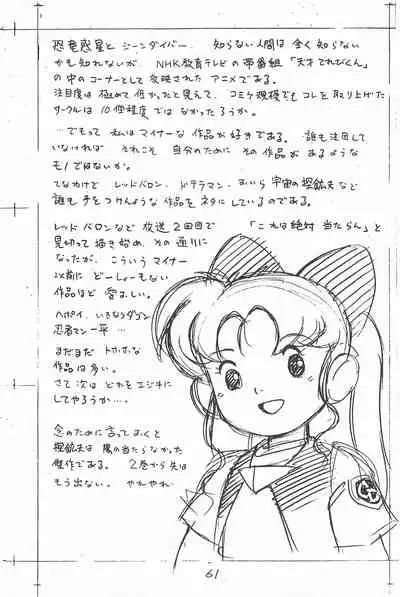 恐竜惑星と ジーンダイバー、知らない人間は 全く知らない
かも知れないが、NHK教育テレビの帯番組「天才てれびくん」
の中のコーナーとして 放映された アニメである。
注目度は 極めて 低かったと見えて、コミケ規模でも コレを取り上げた
サークルは 10個程度では なかったろうか。
…でもって 私はマイナーな 作品が 好きである。誰も注目して
いなければ それこそ 自分のために その作品が あるような
モノではないか。
てなわけで レッドバロン、ドテラマン、まいら 宇宙の探鉱夫など
誰も 手をつけんような 作品を ネタにしているのである。
レッドバロンなど 放送2回目で 「これは絶対 当たらん」と
見切って描き始め、その通りに
なったが、こういうマイナー
以前に どーしょーもない
作品ほど 愛ほしい。
ヘポイ、いきなりダゴン
忍者マン一平 …
まだまだ トホホな
作品は多い。
さて次は どれを エジキに
してやろうか…。
念のために言っておくと
探鉱夫は 陽の当たらなかった
傑作である。2巻から先は
もう出ない。やれやれ
61